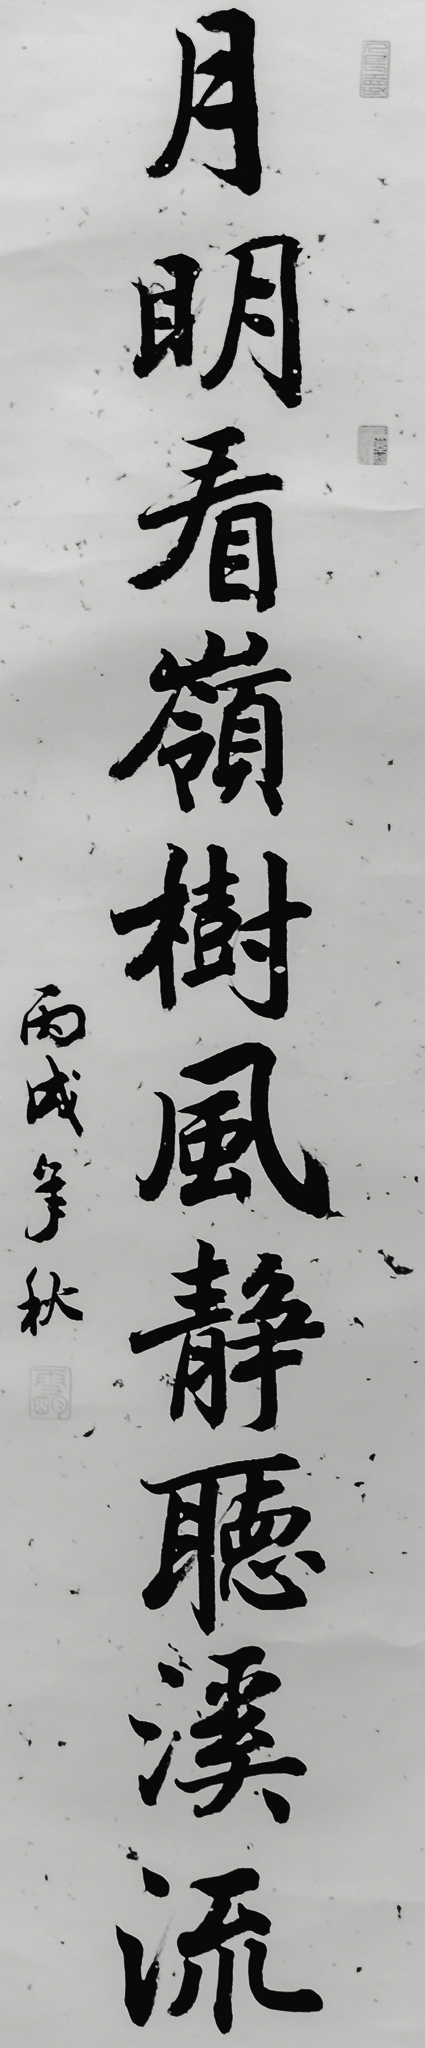 月明看嶺樹風静聽溪流
丙戌年秋